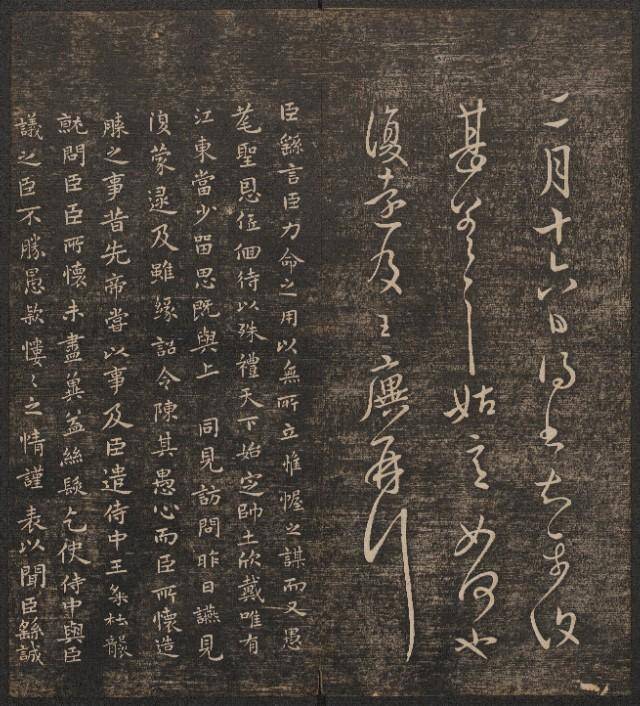 二月十六日得書知
甚 姑 如何
復遠及王廙再行
臣繇言臣力命之用以無所立惟幄之謀而又愚
耄聖恩低佪待以殊禮天下始定帥土欣戴唯有
江東當少留思既與上 同見訪問昨日讌見
復蒙逮及雖緣詔令陳其愚心而臣所懷造
膝之事昔先帝嘗以事及臣遣侍中王粲杜襲
就問臣臣所懷未盡冀益絲髮乞使侍中與臣
議之臣不勝愚款慺々之情謹 表以聞臣繇誠